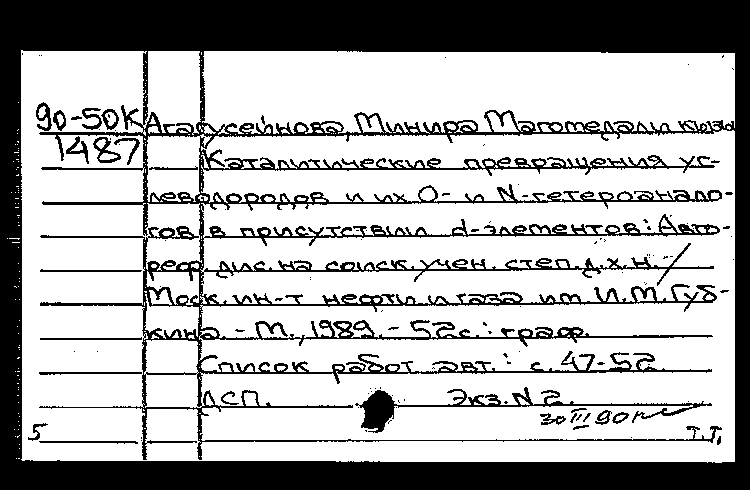 90-50К Агагусейнова, Минира Магомедали кызы
1487 Каталитические превращения уг-
леводородов и их О- и N-гетероанало-
гов в присутствии d-элементов: Авто-
реф. дис. на соиск. учен. степ. д.х.н. /
Моск. ин-т нефти и газа им. И.М. Губ-
кина. - М., 1989. - 52с.: граф.
Список работ авт.: с. 47-52
ДСП. Экз. N 2.
30 III 90
5 Т.Т.